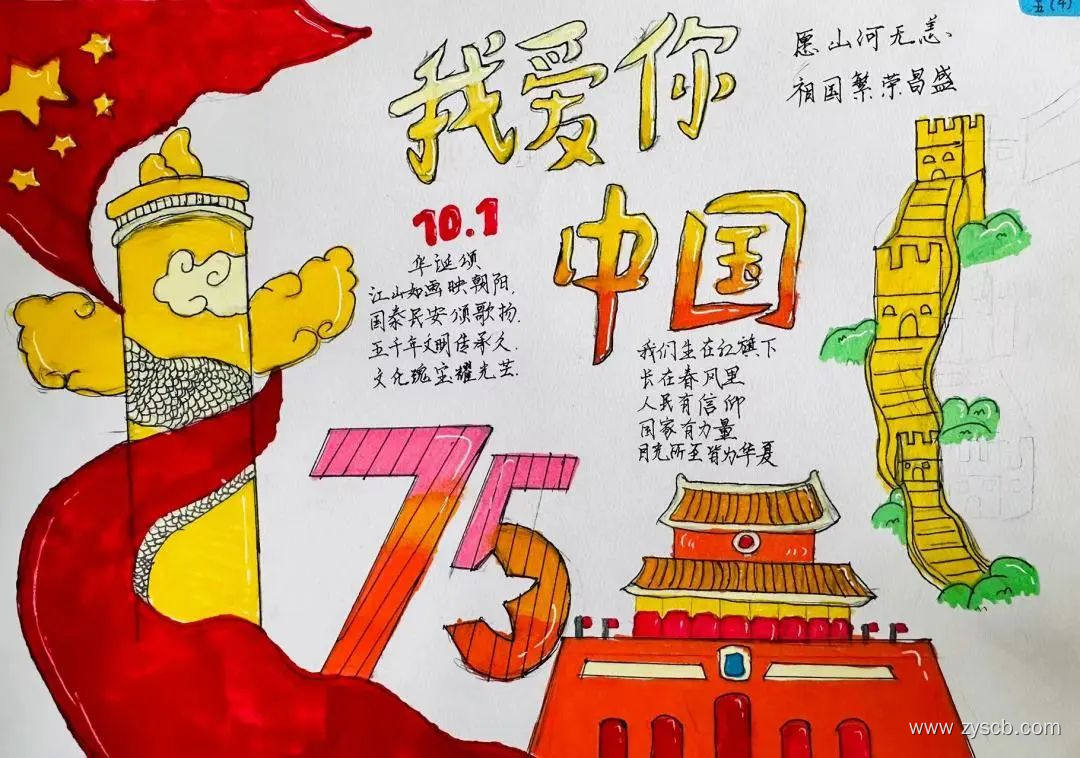 五(4)
我爱你
中国
愿山河无恙、
祖国繁荣昌盛
10.1
华诞颂
江山如画映朝阳,
国泰民安颂歌扬.
五千年文明传承久.
文化瑰宝耀光芒.
我们生在红旗下
长在春风里
人民有信仰
国家有力量
目光所至皆为华夏
75
www.zyscb.com